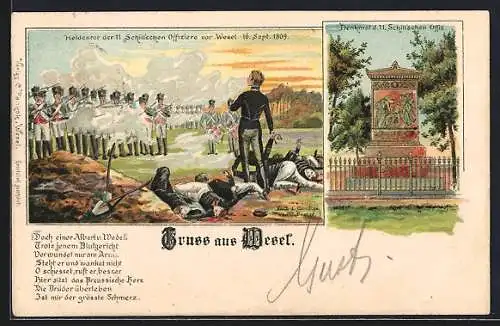 Heldentod der 11 Schill'schen Offiziere vor Wesel 16. Sept. 1809.
Denkmal d. 11. Schill'schen Offiz.
Gruss aus Wesel.
Doch einer Albert v. Wedell
Trotz jenem Blutgericht
Verwundet nur am Arm,
Steht er und wanket nicht
O schesset, ruft er, besser
Hier sitzt das Preussische Herz
Die Brüder überleben
Ist mir der grösste Schmerz.